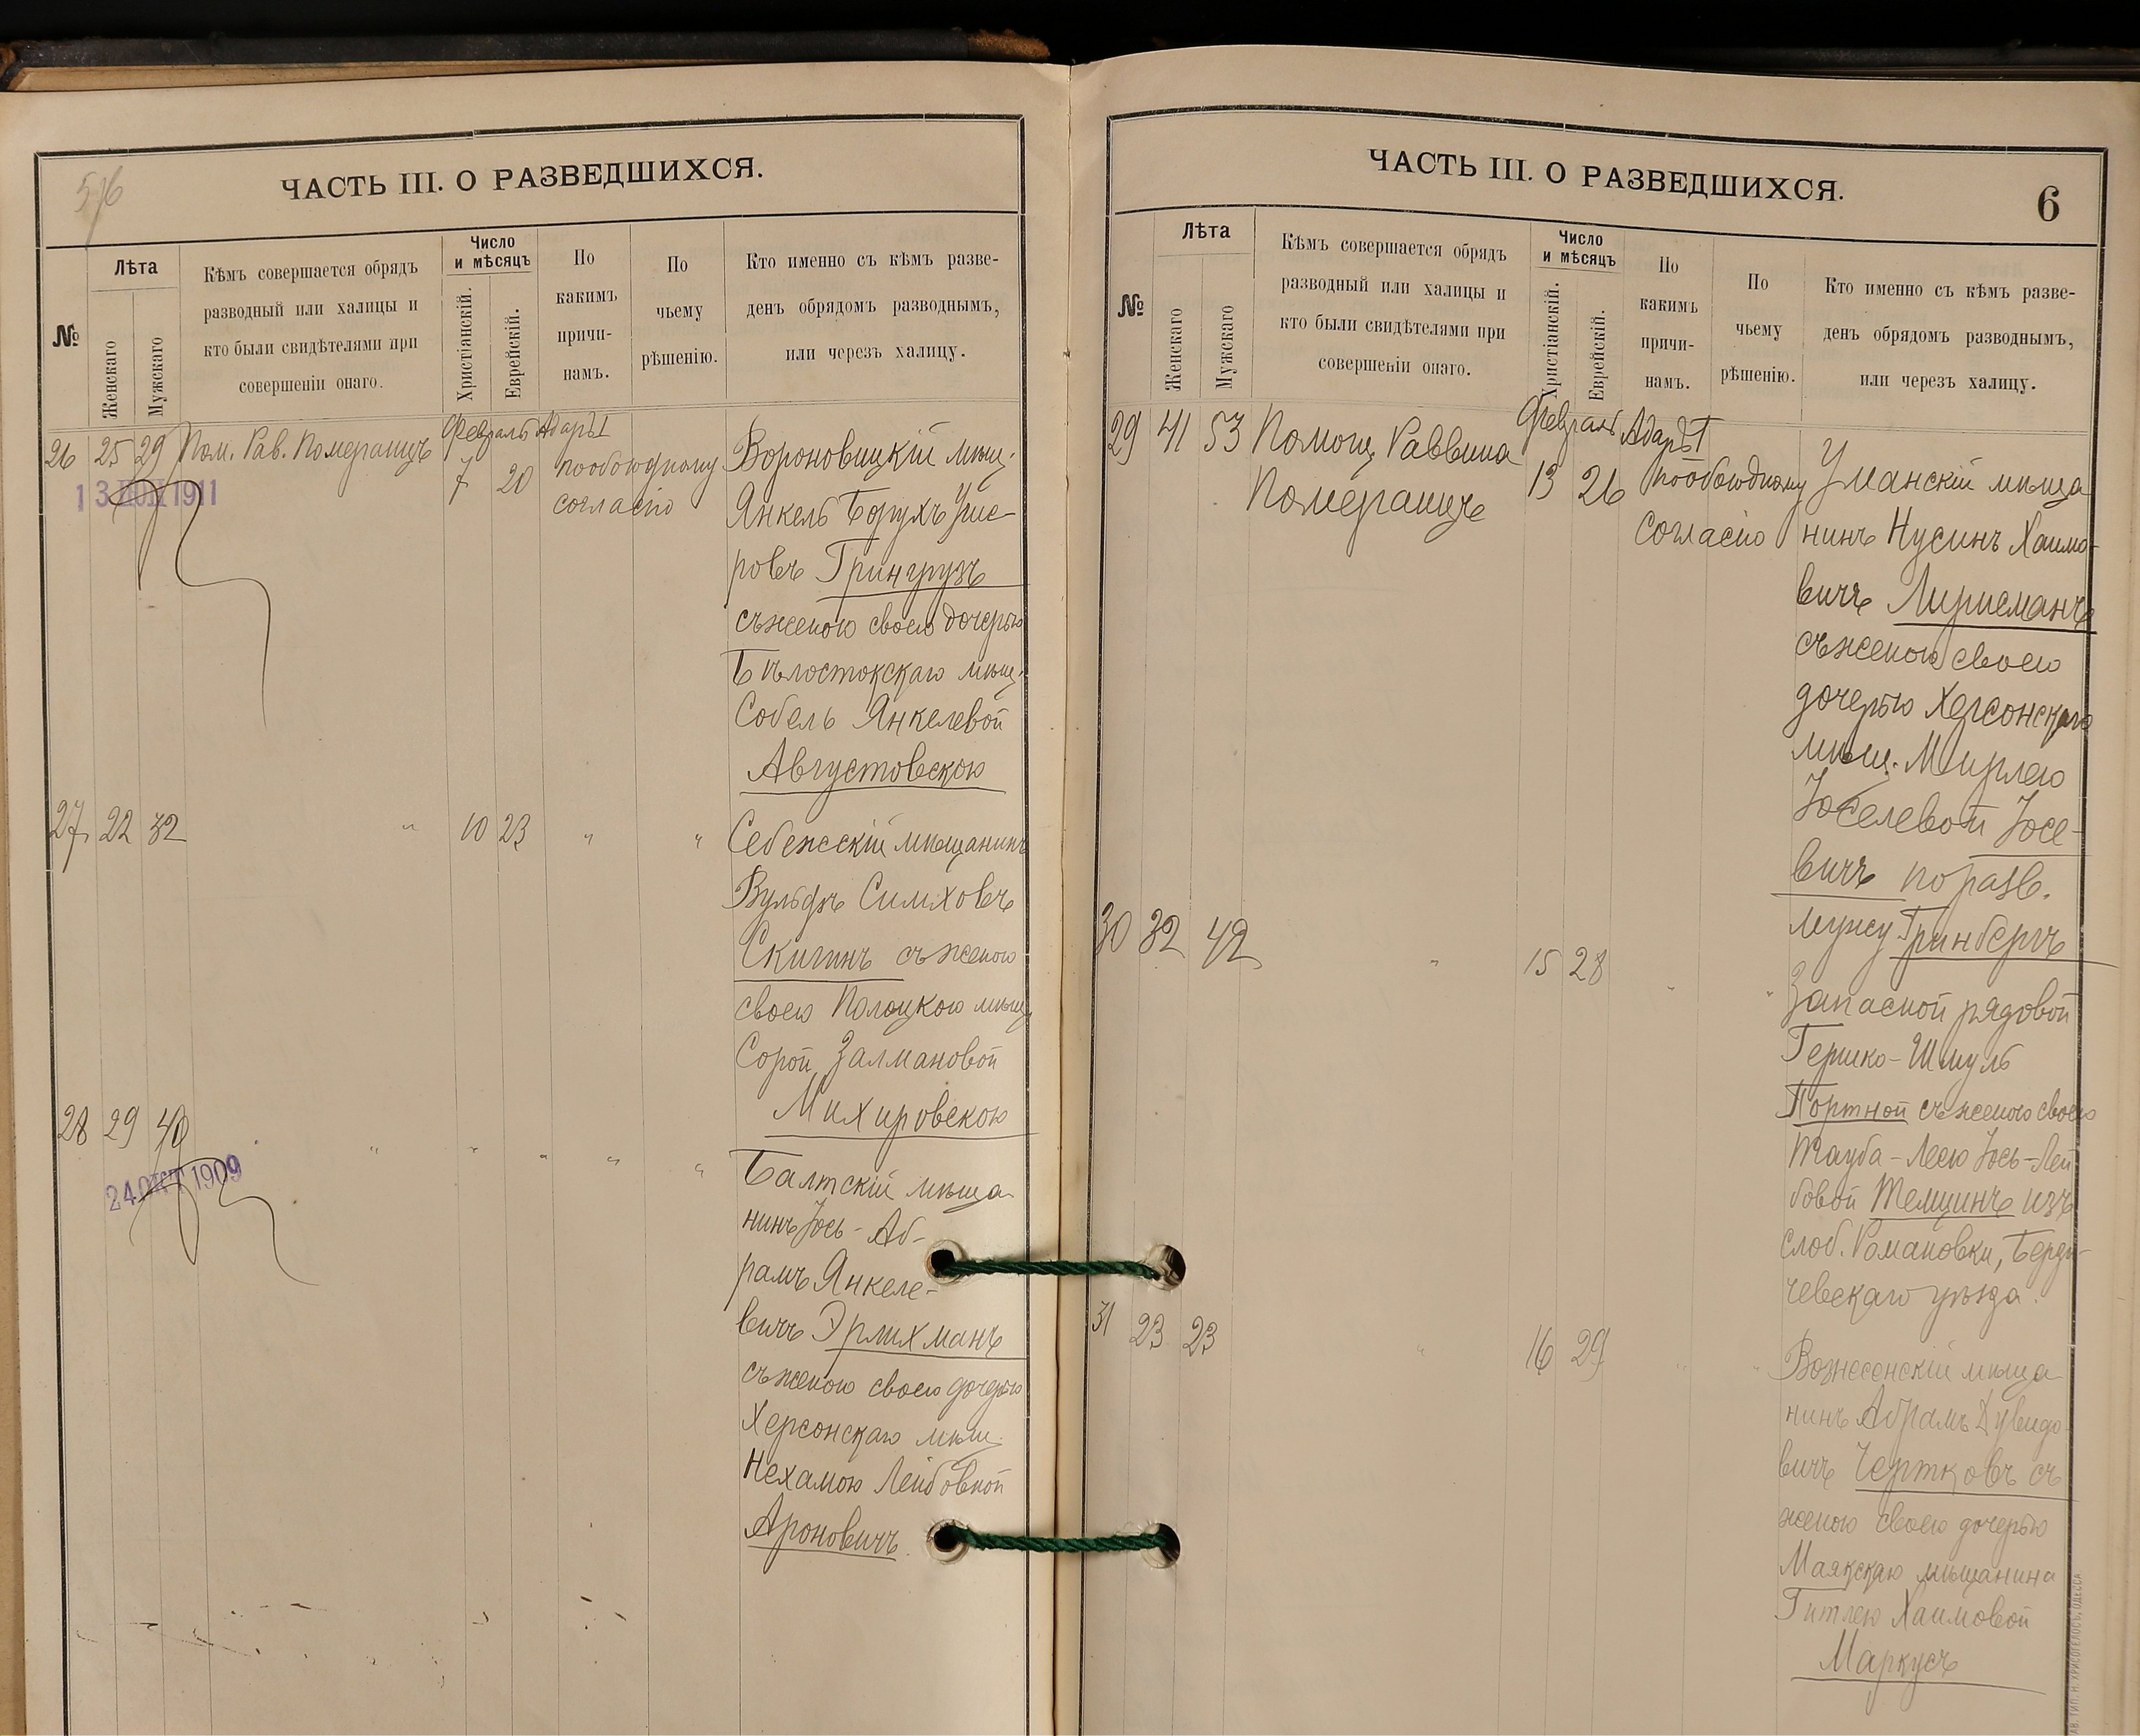 5/6
ЧАСТЬ III. О РАЗВЕДШИХСЯ.
№
Лѣта
Женскаго
Мужскаго
Кѣмъ совершается обрядъ
разводный или халицы и
кто были свидѣтелями при
совершеніи онаго.
Число
и мѣсяцъ
Христіанскій.
Еврейскій.
По
какимъ
причи-
намъ.
По
чьему
рѣшенію.
Кто именно съ кѣмъ разве-
денъ обрядомъ разводнымъ,
или черезъ халицу.
Февраль Адаръ I
26 25 29 Пом. Рав. Померанцъ 7 20 пообоюдному
согласію
13 1911
Вороновицкій мѣщ.
Янкель Борухъ
ровъ Грингрузъ
съ женою своею дочерью
Бѣлостокскаго мѣщ.
Собель Янкелевой
Августовскою
27 22 32 " 10 23 " " Себежскій мѣщанинъ
Вульфъ Симховъ
Скигинъ съ женою
своею Полоцкою мѣщ.
Сорой Залмановой
Михировскою
28 29 40 " " " " "
24 ОКТ 1909
Балтскій мѣща-
нинъ Іось-Аб-
рамъ Янкеле-
вичъ Эрлихманъ
съ женою своею дочерью
Херсонскаго мѣщ.
Нехамою Лейбовной
Ароновичъ.
ЧАСТЬ III. О РАЗВЕДШИХСЯ.
6
№
Лѣта
Женскаго
Мужскаго
Кѣмъ совершается обрядъ
разводный или халицы и
кто были свидѣтелями при
совершеніи онаго.
Число
и мѣсяцъ
Христіанскій.
Еврейскій.
По
какимъ
причи-
намъ.
По
чьему
рѣшенію.
Кто именно съ кѣмъ разве-
денъ обрядомъ разводнымъ,
или черезъ халицу.
Февраль Адаръ I
29 41 53 Помощ. Раввина
Померанцъ
13 26 пообоюдному
согласію
Уманскій мѣща-
нинъ Нусинъ Хаимо-
вичъ Лирисманъ
съ женою своею
дочерью Херсонскаго
мѣщ. Мирлею
Іоселевой Іосе-
вичъ по разв.
мужу Гринбергъ
30 32 42 " 15 28 " "
Запасной рядовой
Гершко-Шмуль
Портной съ женою своею
Тауба-Леею Іось-Лей-
бовой Темцинъ изъ
слоб. Романовки, Берди-
чевскаго уѣзда.
31 23 23 " 16 29 " "
Вознесенскій мѣща-
нинъ Абрамъ Дувидо-
вичъ Чертковъ съ
женою своею дочерью
Маякскаго мѣщанина
Гитлею Хаимовой
Маркусъ